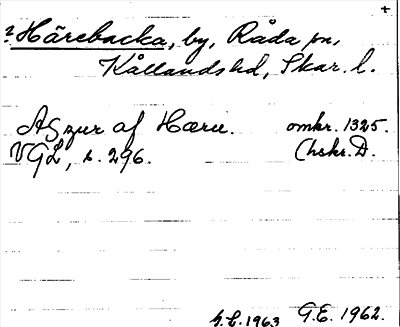 +
? Härebacka, by, Råda sn,
Kållands hd, Skar. l.
Aszur af Hæru. omkr. 1325.
VGL, s. 296. (hskr. D.
G.E. 1962.